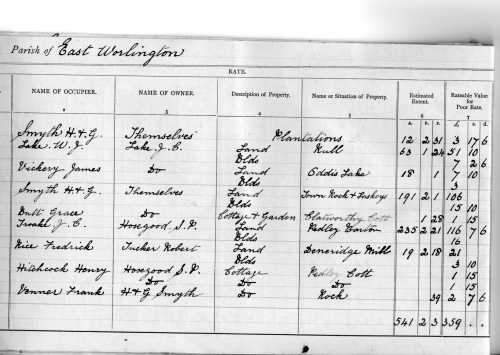 Parish of East Worlington
RATE.
NAME OF OCCUPIER. NAME OF OWNER. Description of Property. Name or Situation of Property. Estimated Extent. Rateable Value for Poor Rate.
2 3 4 5 6 7
A. R. P. £ s. d.
Smyth H & G. Themselves Plantations 12 2 31 3 17 6
Lake W. J. Lake J. C. Land Hull 63 1 24 51 10
Blds 7 2 6
Vickery James Do Land Oddis Lake 18 1 7 10
Blds 3
Smyth H & G. Themselves Land Town Rock & 191 2 1 106
Blds 15 10
Butt Grace Do Cottage & Garden Clatworthy Cott 1 28 1 15
Trake J. C. Hosegood S. P. Land Pedley Barton 235 2 21 116 7 6
Blds 16
Rice Fredrick Tucker Robert Land Deneridge Mill 19 2 18 21
Blds 3 10
Hitchcock Henry Hosegood S. P. Cottage Pedley Cott 1 15
Do Do Do 1 15
Venner Frank H & G Smyth Do Rock 39 2 7 6
541 2 3 359 . .